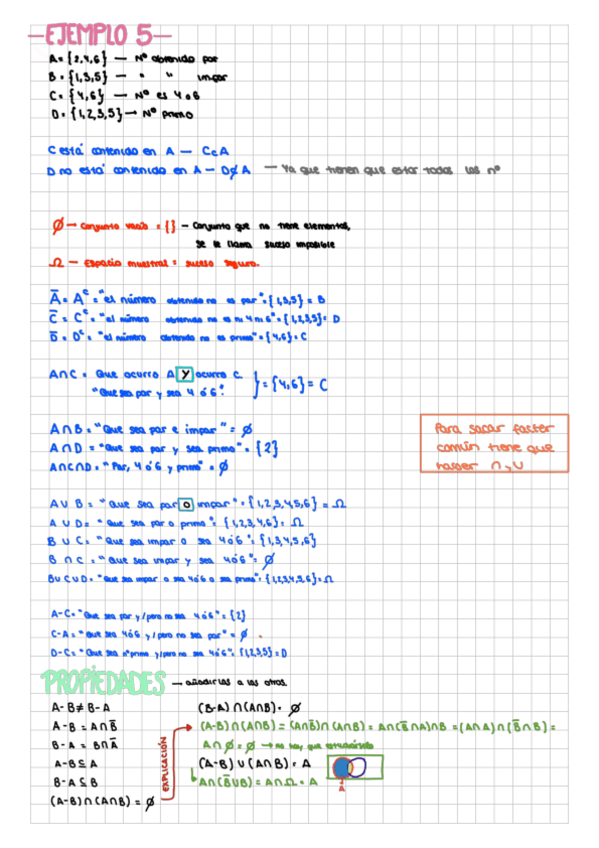 EJEMPLO 5
A = {2,4,6} — Nº obtenido par
B = {1,3,5} — " " impar
C = {4,6} — Nº es 4 o 6
D = {1,2,3,5} — Nº primo
C está contenido en A — C⊂A
D no está contenido en A — D⊄A — Ya que tienen que estar todos los nº
Ø — Conjunto vacío = {} — Conjunto que no tiene elementos,
se le llama suceso imposible
Ω — Espacio muestral = suceso seguro.
A̅ = Aᶜ = "el número obtenido no es par" = {1,3,5} = B
C̅ = Cᶜ = "el número obtenido no es ni 4 ni 6" = {1,2,3,5} = D
D̅ = Dᶜ = "el número obtenido no es primo" = {4,6} = C
A∩C = Que ocurra A y ocurra C.
"Que sea par y sea 4 ó 6". } = {4,6} = C
A∩B = "Que sea par e impar" = Ø
A∩D = "Que sea par y sea primo" = {2}
A∩C∩D = "Par, 4 ó 6 y primo" = Ø
Para sacar factor
común tiene que
haber ∩, ∪
A ∪ B = "Que sea par o impar" = {1,2,3,4,5,6} = Ω
A ∪ D = "Que sea par o primo" = {1,2,3,4,6} = Ω
B ∪ C = "Que sea impar o sea 4 ó 6" = {1,3,4,5,6}
B ∩ C = "Que sea impar y sea 4 ó 6" = Ø
B∪C∪D = "Que sea impar o sea 4 ó 6 o sea primo" = {1,2,3,4,5,6} = Ω
A-C = "Que sea par y/pero no sea 4 ó 6" = {2}
C-A = "Que sea 4 ó 6 y/pero no sea par" = Ø
D-C = "Que sea nº primo y/pero no sea 4 ó 6" = {1,2,3,5} = D
PROPIEDADES — añadirlas a las otras.
A-B ≠ B-A
A-B = A∩B̅
B-A = B∩A̅
A-B ⊆ A
B-A ⊆ B
(A-B)∩(A∩B) = Ø
EXPLICACIÓN
(B-A)∩(A∩B) = Ø
(A-B)∩(A∩B) = (A∩B̅)∩(A∩B) = A∩(B̅∩A)∩B = (A∩A)∩(B̅∩B) =
A∩Ø = Ø → no hay que
(A-B)∪(A∩B) = A
A∩(B̅∪B) = A∩Ω = A
A